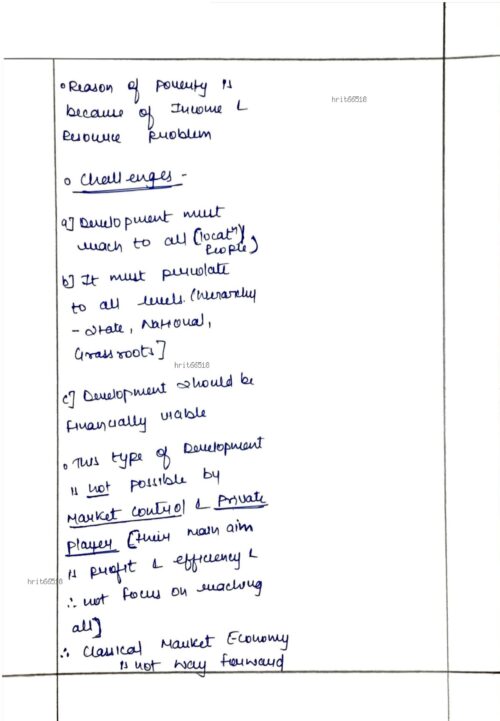 • Reason of poverty is
because of Income &
Resource problem
hrit66518
• Challenges -
a] Development must
reach to all (locatⁿ, People)
b] It must percolate
to all levels. (hierarchy
- State, National,
Grassroots]
hrit66518
c] Development should be
financially viable
• This type of Development
is not possible by
Market control & Private
player [their main aim
is profit & efficiency &
hrit66518
∴ not focus on reaching
all]
∴ Classical Market Economy
is not way forward